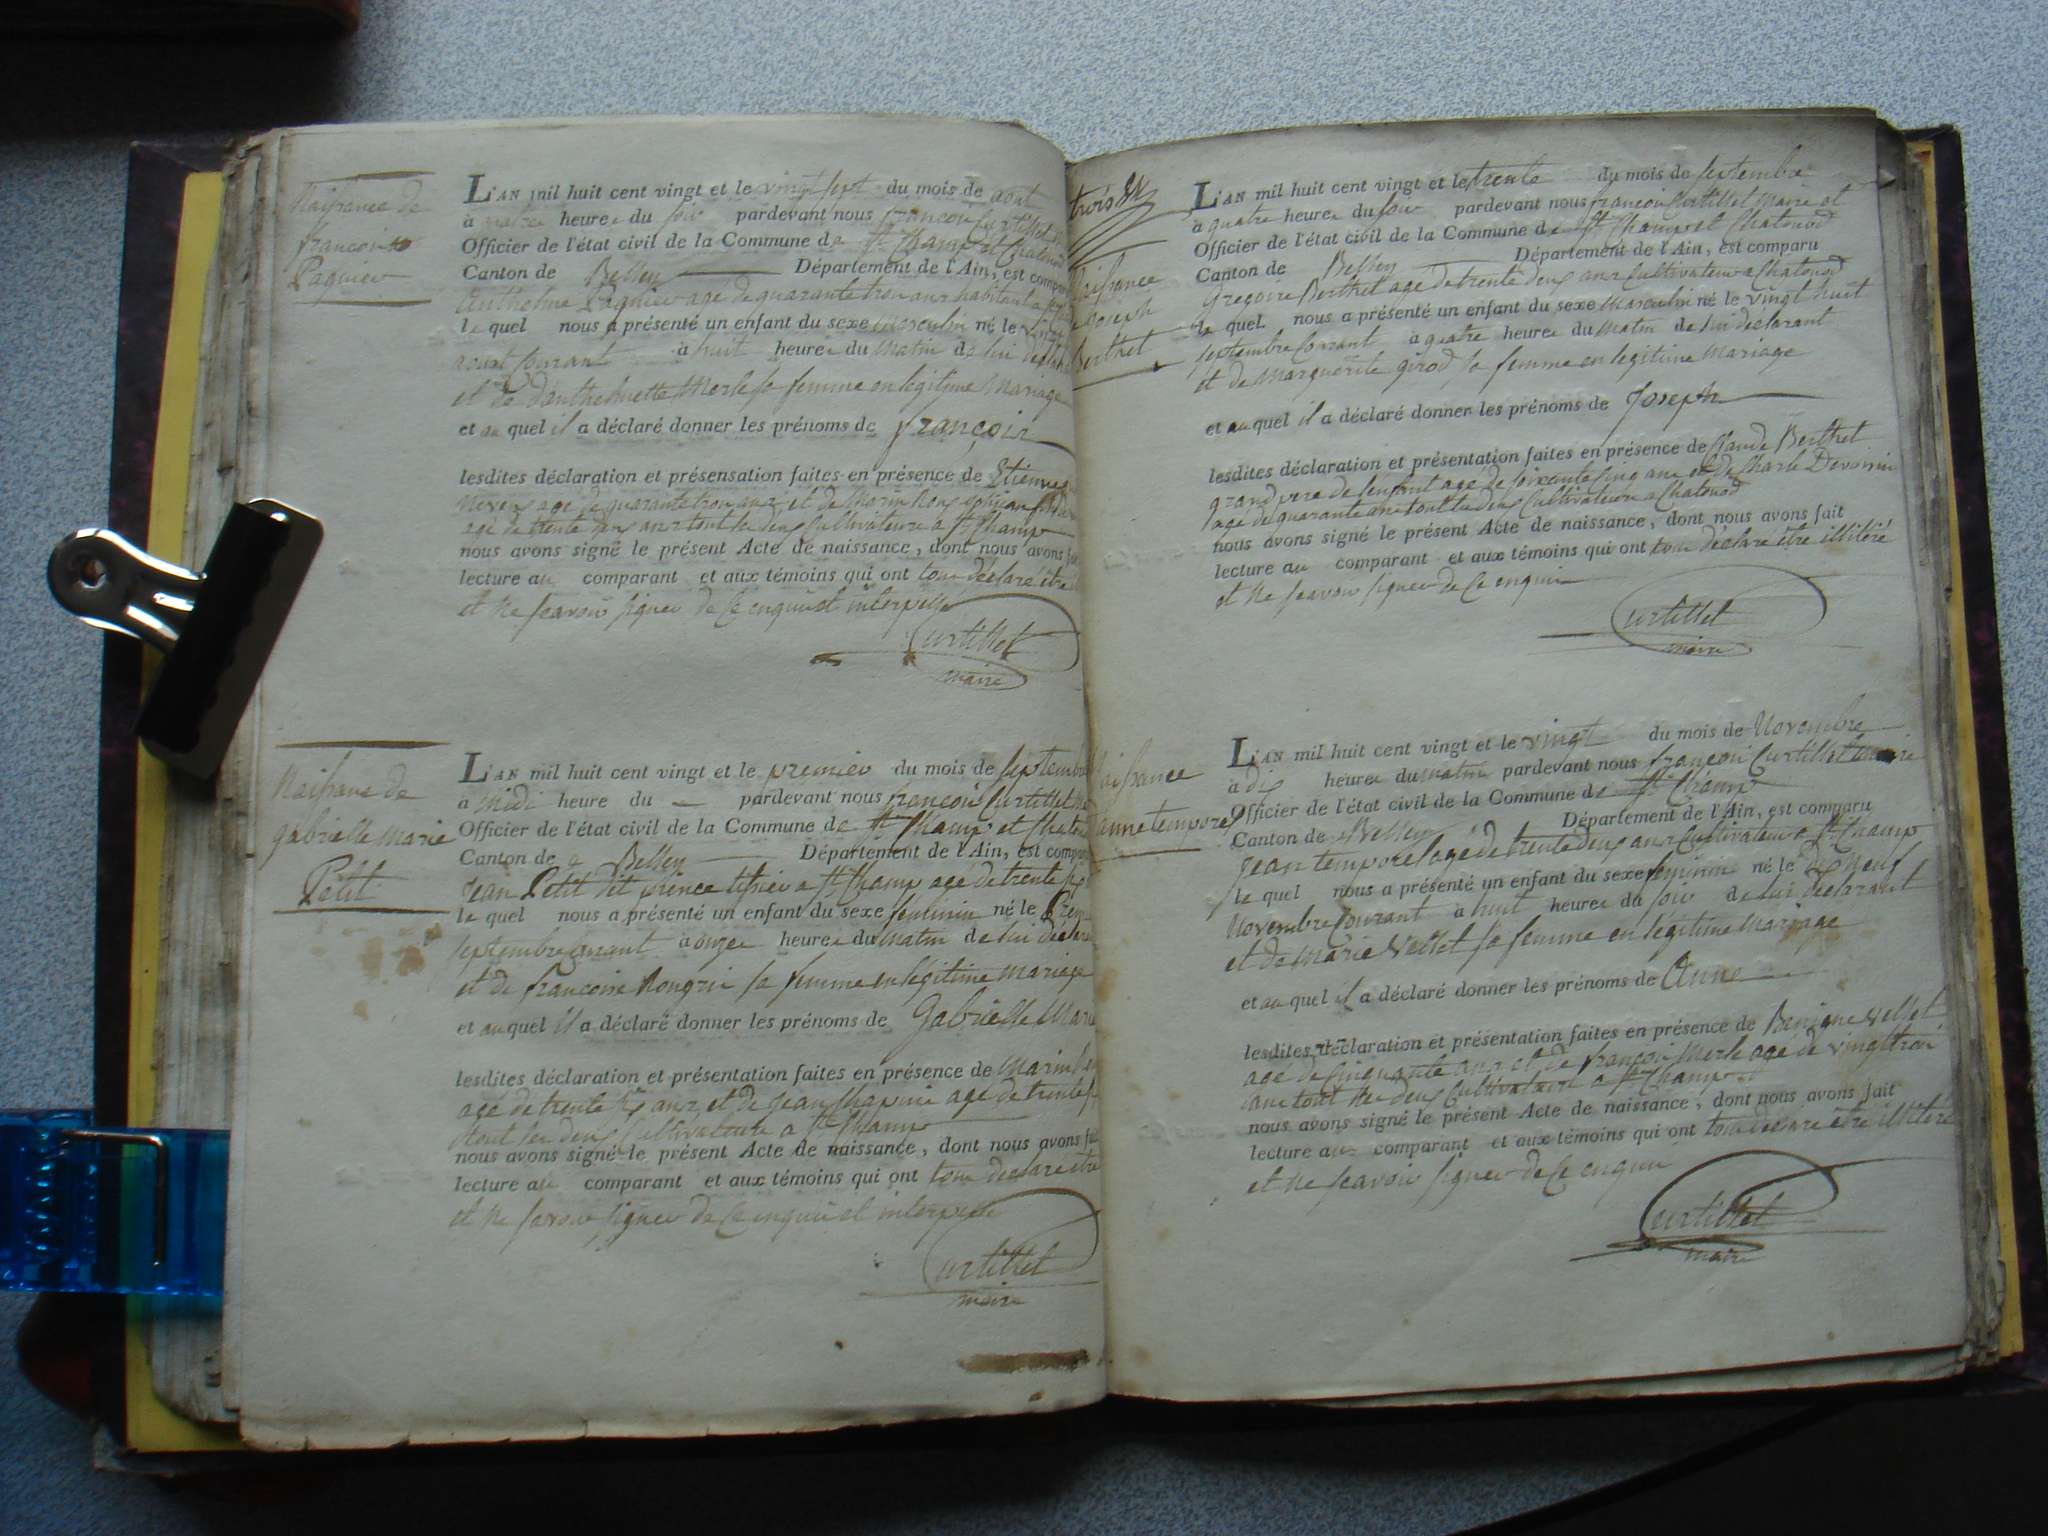 Naissance de
francois
Paquier
L'AN mil huit cent vingt et le vingt sept du mois de aout
à quatre heures du soir pardevant nous francois Curtillet
Officier de l'état civil de la Commune de St Champ et Chatonod
Canton de Belley Département de l'Ain, est comparu
Anthelme Paquier agé de quarante trois ans habitant a
le quel nous a présenté un enfant du sexe masculin né le
aout courant à huit heures du matin de lui
et de d'anthelmette Merle sa femme en legitime Mariage
et au quel il a déclaré donner les prénoms de françois
lesdites déclaration et présensation faites en présence de Etienne
agé de quarante trois ans et de Marin
agé de trente ans tout les deux Cultivateurs a St Champ
nous avons signé le présent Acte de naissance, dont nous avons
lecture au comparant et aux témoins qui ont tous déclaré être
et ne scavoir signer de ce enquis et interpellé
Curtillet
maire
Naissance de
gabrielle marie
Petit
L'AN mil huit cent vingt et le premier du mois de septembre
à midi heure du — pardevant nous francois Curtillet
Officier de l'état civil de la Commune de St Champ et Chatonod
Canton de Belley Département de l'Ain, est comparu
Jean Petit dit prince a St Champ age de trente
le quel nous a présenté un enfant du sexe feminin né le
septembre courant à onze heures du matin de lui
et de francoise sa femme en légitime mariage
et au quel il a déclaré donner les prénoms de Gabrielle Marie
lesdites déclaration et présentation faites en présence de Marin
agé de trente six ans et de Jean age de trente
tout les deux Cultivateurs a St Champ
nous avons signé le présent Acte de naissance, dont nous avons
lecture au comparant et aux témoins qui ont tous déclaré être
et ne savoir signer de ce enquis et interpellé
Curtillet
maire
trois
Naissance
de Joseph
Berthet
L'AN mil huit cent vingt et le trente du mois de septembre
à quatre heures du soir pardevant nous françois Curtillet Maire et
Officier de l'état civil de la Commune de St Champ et Chatonod
Canton de Belley Département de l'Ain, est comparu
Gregoire Berthet agé de trente deux ans Cultivateur a Chatonod
le quel nous a présenté un enfant du sexe masculin né le vingt huit
septembre courant à quatre heures du matin de lui déclarant
et de Marguerite girod sa femme en legitime mariage
et au quel il a déclaré donner les prénoms de Joseph
lesdites déclaration et présentation faites en présence de Claude Berthet
grand pere de l'enfant agé de soixante cinq ans et de Charle
agé de quarante ans tout les deux Cultivateurs a Chatonod
nous avons signé le présent Acte de naissance, dont nous avons fait
lecture au comparant et aux témoins qui ont tous déclaré être illitéré
et ne scavoir signer de ce enquis
Curtillet
maire
Naissance
d'anne temporel
L'AN mil huit cent vingt et le vingt du mois de Novembre
à dix heures du matin pardevant nous françois Curtillet maire
Officier de l'état civil de la Commune de St Champ
Canton de Belley Département de l'Ain, est comparu
Jean temporel agé de trente deux ans Cultivateur a St Champ
le quel nous a présenté un enfant du sexe feminin né le dix neuf
Novembre courant à huit heures du soir de lui déclarant
et de Marie Vellet sa femme en légitime Mariage
et au quel il a déclaré donner les prénoms de Anne
lesdites déclaration et présentation faites en présence de Benigne Vellet
agé de cinquante ans et de françois Merle agé de vingt trois
ans tout les deux Cultivateurs a St Champ
nous avons signé le présent Acte de naissance, dont nous avons fait
lecture au comparant et aux témoins qui ont tous déclaré être illitéré
et ne scavoir signer de ce enquis
Curtillet
maire